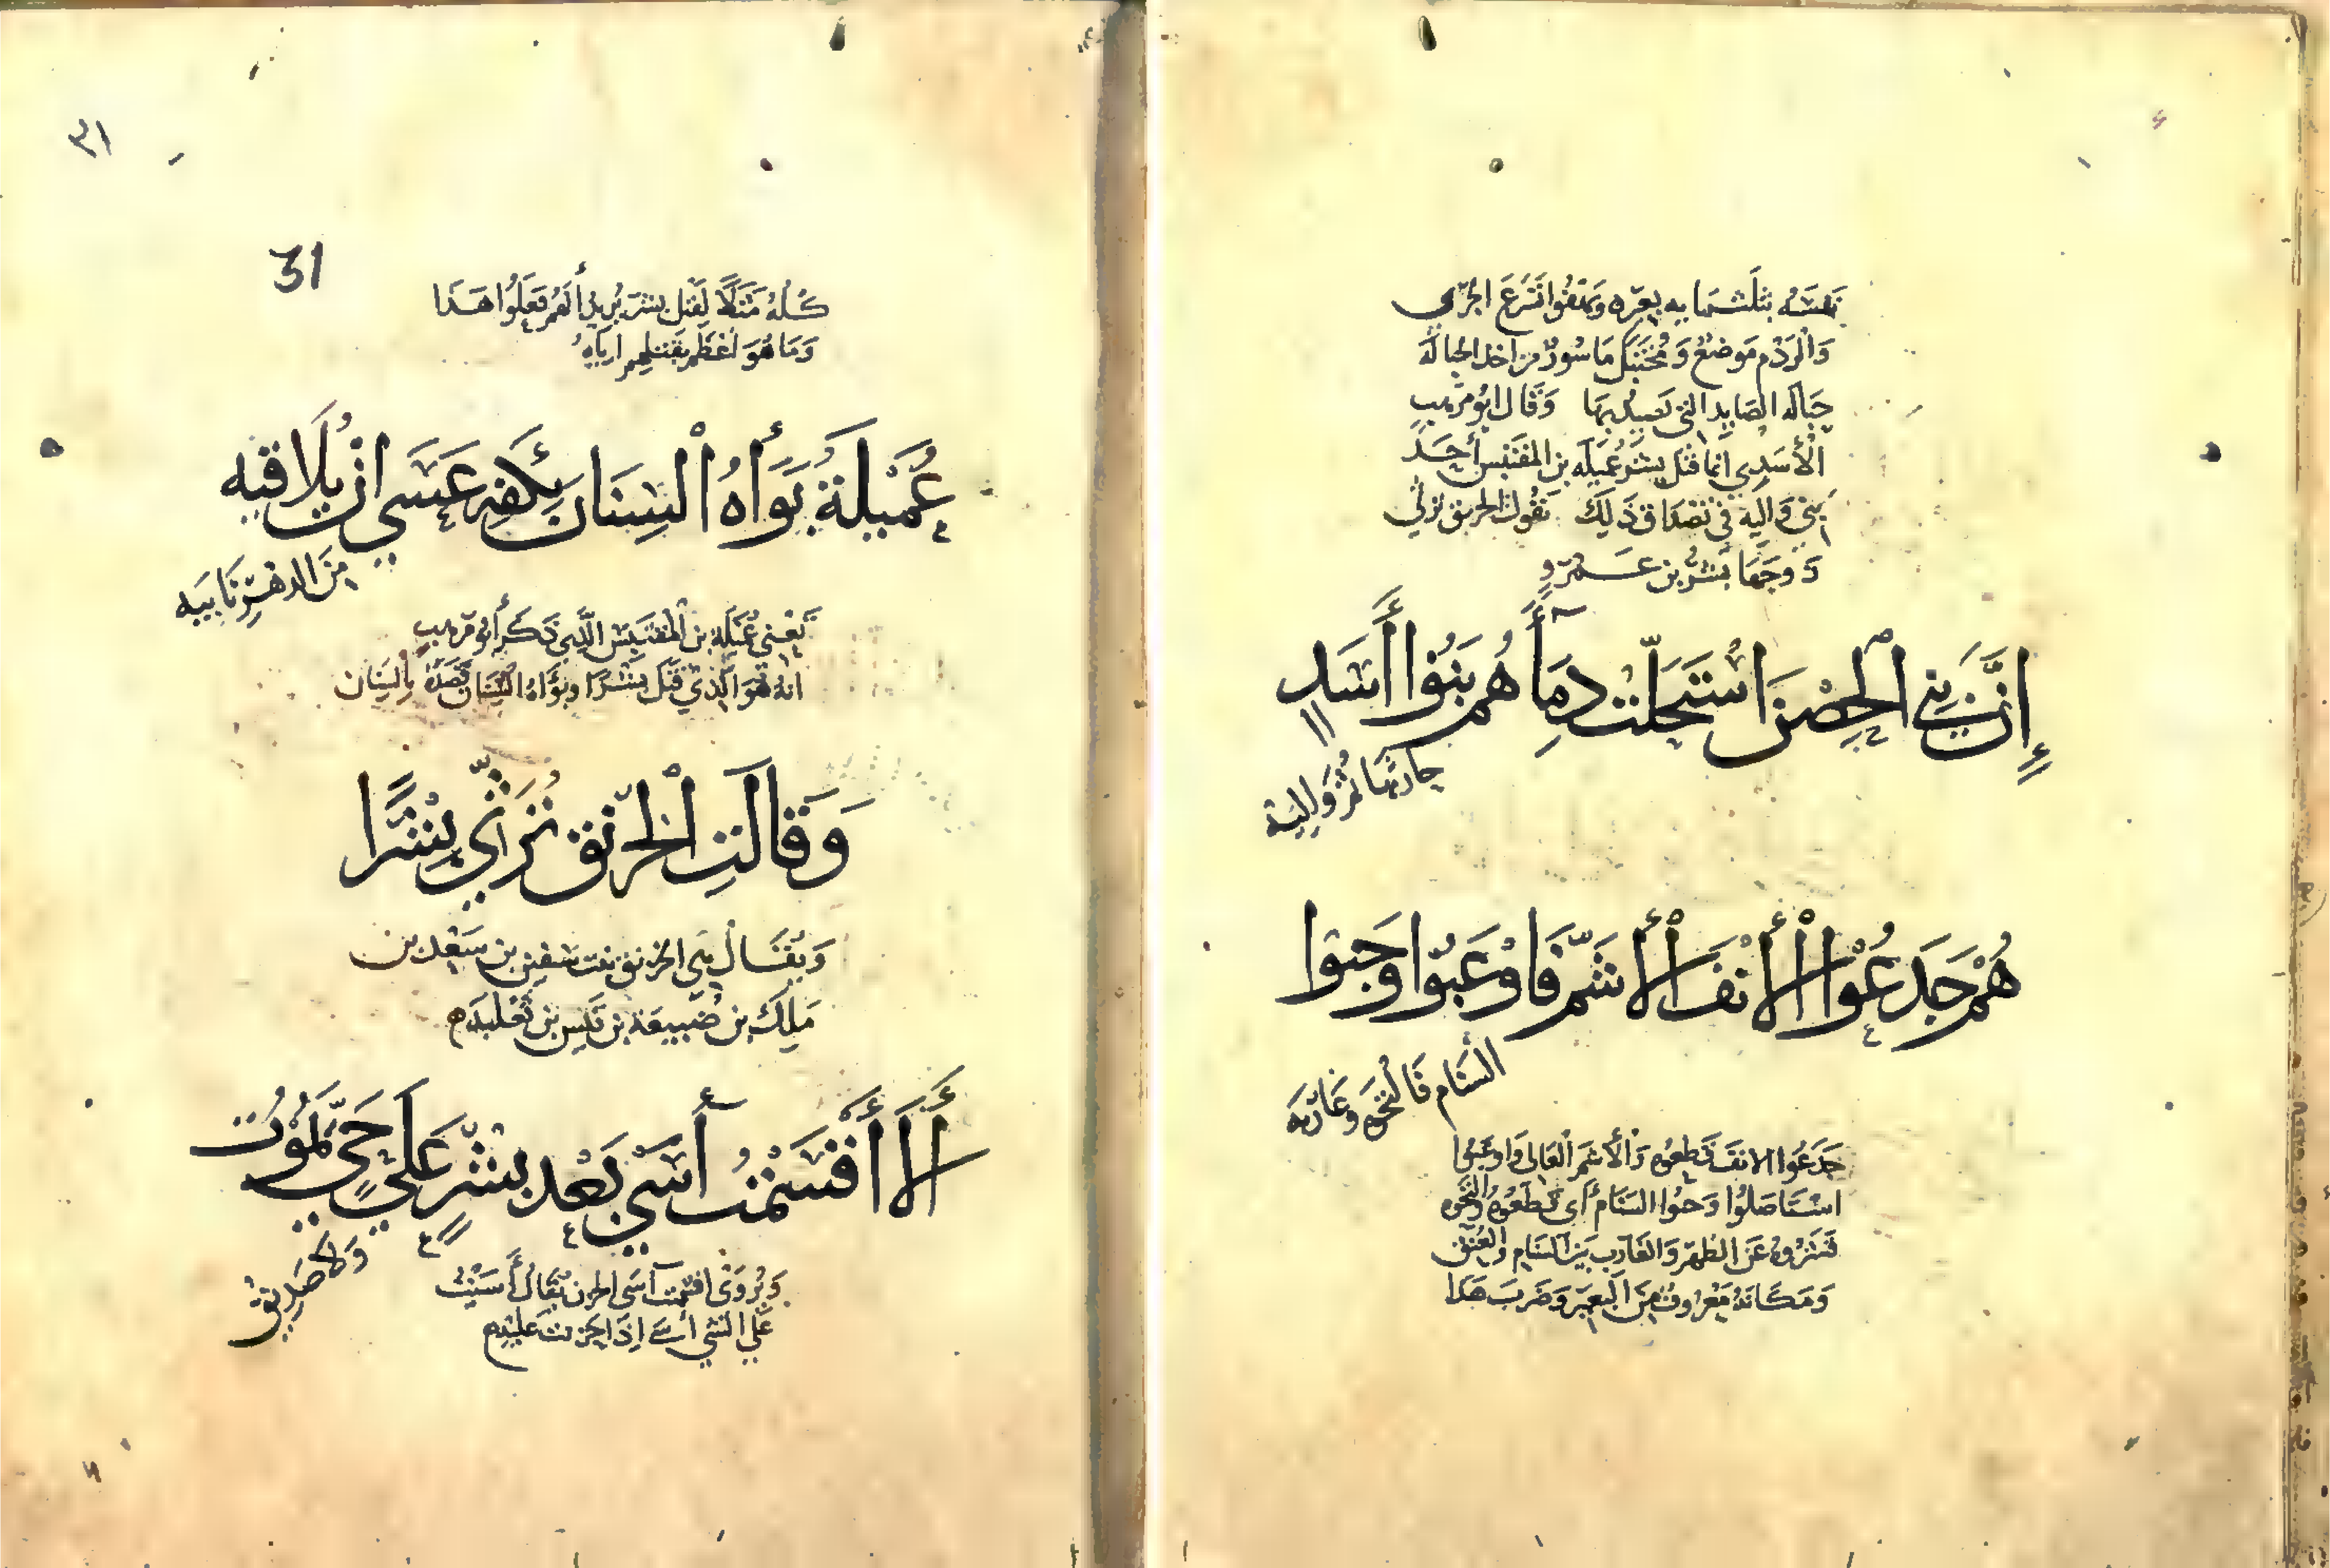 وَالرَّدْم مَوضِعٌ وَمُخْتَبَل مَاسُورٌ من اخذ الحباله
حِبَاله الصَايد التى يَصِيدُ بهَا وَقَال ابُو مَرْهب
الأَسَدِي انما قتل بِشر عُمَيلَه بن المقتبس أَحَد
بَنِي وَالِبه فى تصداق ذَلِكَ تقُول الخرنق ترثي
زَوجَهَا بِشرُ بن عَمْرو
إِنَّ بَنِي الْحِصْنِ اسْتَحَلَّتْ دِمَآءَهُم بَنُوا أَسَدٍ
حَارثهَا ثُمَّ وَالِبَة
هُمُ جَدَعُوا الْأَنْفَ الْأَشَمَّ فَاوْعَبُوا وَجَبّوا
السَّنَام فَالْتَحَوهُ وَغَارِبَه
جَدَعُوا الانفَ قَطعُوه وَالأَشَمّ العَالى وَاوعَبُوا
اسْتَاصَلُوا وَجَبُّوا السَنَام أى قَطَعُوهُ وَالْتَحَوه
قَشَرُوهُ عَن الظهْر وَالغَارب بَين السَنَام وَالعُنق
وَمَكَانَهُ مَعْرُوف مِنَ الْبَعِير وَضَرَبَ هَذَا
٣١
31
كُلَّهُ مَثَلًا لِقَتل بِشر يُريدُ أنهُم فَعَلُوا هَذَا
وَمَا هُوَ اعْظَم بقَتلهم ارباب
عُمَيْلَةُ بَوَّأَهُ الْسِنَان بِكَفِّهِ عَسَى ان تُلَاقِيَه
مِنَ الدهْرِ نَايبَه
يَعْنِي عُمَيلَة بن المقتبس الَّذِي ذَكَر أَبُو مَرهب
انهُ هُوَ الَّذِي قَتَل بِشْرًا وبَوَّاهُ السِنَان قَصَدَهُ بالسِنَان
وَقَالَتِ الْخِرْنِق تَرْثِي بِشْرًا
وَيُقَال هِي الخرنق بنت سَفين بن سَعْد بن
مَلِك بن ضُبَيعَة بن قَيس بن ثَعْلبَه
أَلَا أَقْسَمْتُ آسَي بَعْد بِشْرٍ عَلَي حَيٍّ يَمُوْتُ
وَلَا صَدِيْق
وَيُرْوَى اقسمت آسَى الحزن يُقَالُ أَسَيْتُ
عَلَي الشي أسى اذَا حزنت عَليه